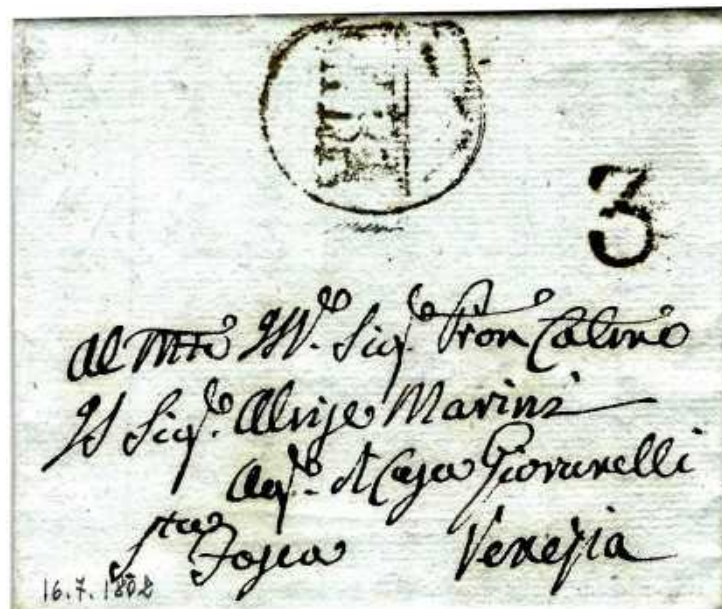 3
Al Mto Ille. Sigr. Pron Colmo
Il Sigr. Alvise Marini
Agte. di Casa Giovanelli
Sta Fosca Venezia
16.7.1802